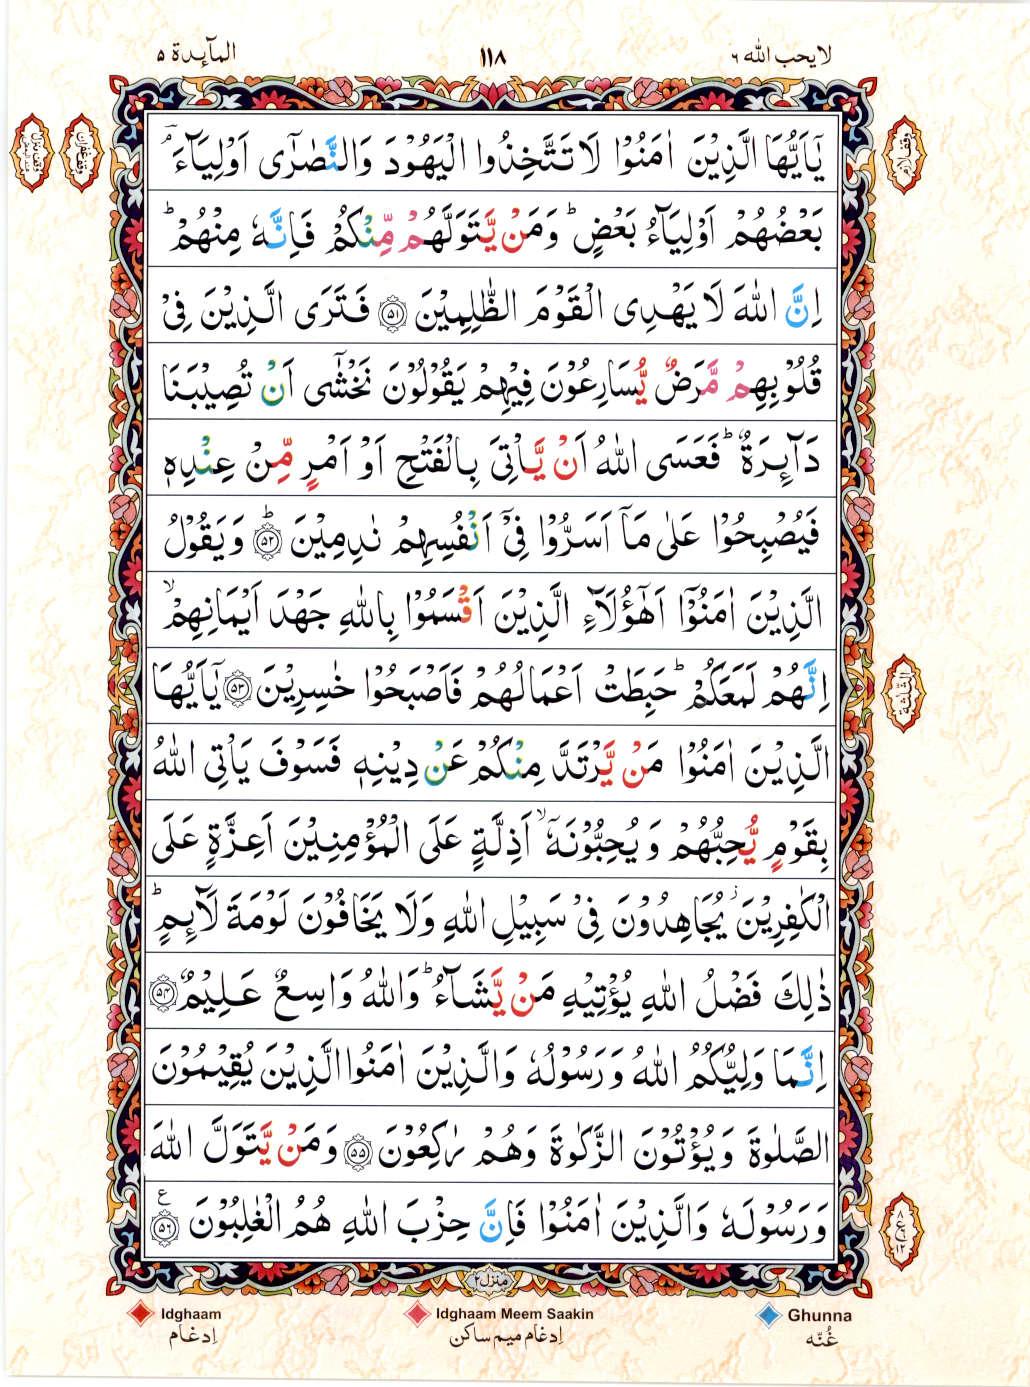 لا يحب الله ٦
١١٨
المآئدة ٥
وقف لازم
وقف غفران
يٰۤاَيُّهَا الَّذِيْنَ اٰمَنُوْا لَا تَتَّخِذُوا الْيَهُوْدَ وَالنَّصٰرٰۤى اَوْلِيَآءَ ۘ
بَعْضُهُمْ اَوْلِيَآءُ بَعْضٍ ؕ وَمَنْ يَّتَوَلَّهُمْ مِّنْكُمْ فَاِنَّهٗ مِنْهُمْ ؕ
اِنَّ اللّٰهَ لَا يَهْدِى الْقَوْمَ الظّٰلِمِيْنَ ﴿۵۱﴾ فَتَرَى الَّذِيْنَ فِىْ
قُلُوْبِهِمْ مَّرَضٌ يُّسَارِعُوْنَ فِيْهِمْ يَقُوْلُوْنَ نَخْشٰٓى اَنْ تُصِيْبَنَا
دَآئِرَةٌ ؕ فَعَسَى اللّٰهُ اَنْ يَّاْتِىَ بِالْفَتْحِ اَوْ اَمْرٍ مِّنْ عِنْدِهٖ
فَيُصْبِحُوْا عَلٰى مَاۤ اَسَرُّوْا فِىْۤ اَنْفُسِهِمْ نٰدِمِيْنَ ؕ ﴿۵۲﴾ وَيَقُوْلُ
الَّذِيْنَ اٰمَنُوْۤا اَهٰٓؤُلَآءِ الَّذِيْنَ اَقْسَمُوْا بِاللّٰهِ جَهْدَ اَيْمَانِهِمْ ۙ
اِنَّهُمْ لَمَعَكُمْ ؕ حَبِطَتْ اَعْمَالُهُمْ فَاَصْبَحُوْا خٰسِرِيْنَ ﴿۵۳﴾ يٰۤاَيُّهَا
الثلٰثة
الَّذِيْنَ اٰمَنُوْا مَنْ يَّرْتَدَّ مِنْكُمْ عَنْ دِيْنِهٖ فَسَوْفَ يَاْتِى اللّٰهُ
بِقَوْمٍ يُّحِبُّهُمْ وَيُحِبُّوْنَهٗۤ ۙ اَذِلَّةٍ عَلَى الْمُؤْمِنِيْنَ اَعِزَّةٍ عَلَى
الْكٰفِرِيْنَ ۫ يُجَاهِدُوْنَ فِىْ سَبِيْلِ اللّٰهِ وَلَا يَخَافُوْنَ لَوْمَةَ لَآئِمٍ ؕ
ذٰلِكَ فَضْلُ اللّٰهِ يُؤْتِيْهِ مَنْ يَّشَآءُ ؕ وَاللّٰهُ وَاسِعٌ عَلِيْمٌ ﴿۵۴﴾
اِنَّمَا وَلِيُّكُمُ اللّٰهُ وَرَسُوْلُهٗ وَالَّذِيْنَ اٰمَنُوا الَّذِيْنَ يُقِيْمُوْنَ
الصَّلٰوةَ وَيُؤْتُوْنَ الزَّكٰوةَ وَهُمْ رٰكِعُوْنَ ﴿۵۵﴾ وَمَنْ يَّتَوَلَّ اللّٰهَ
وَرَسُوْلَهٗ وَالَّذِيْنَ اٰمَنُوْا فَاِنَّ حِزْبَ اللّٰهِ هُمُ الْغٰلِبُوْنَ ع ﴿۵۶﴾
٨ ع ١٢
منزل ٢
Idghaam
Idghaam Meem Saakin
Ghunna
اِدغام
اِدغام میم ساکن
غُنّه